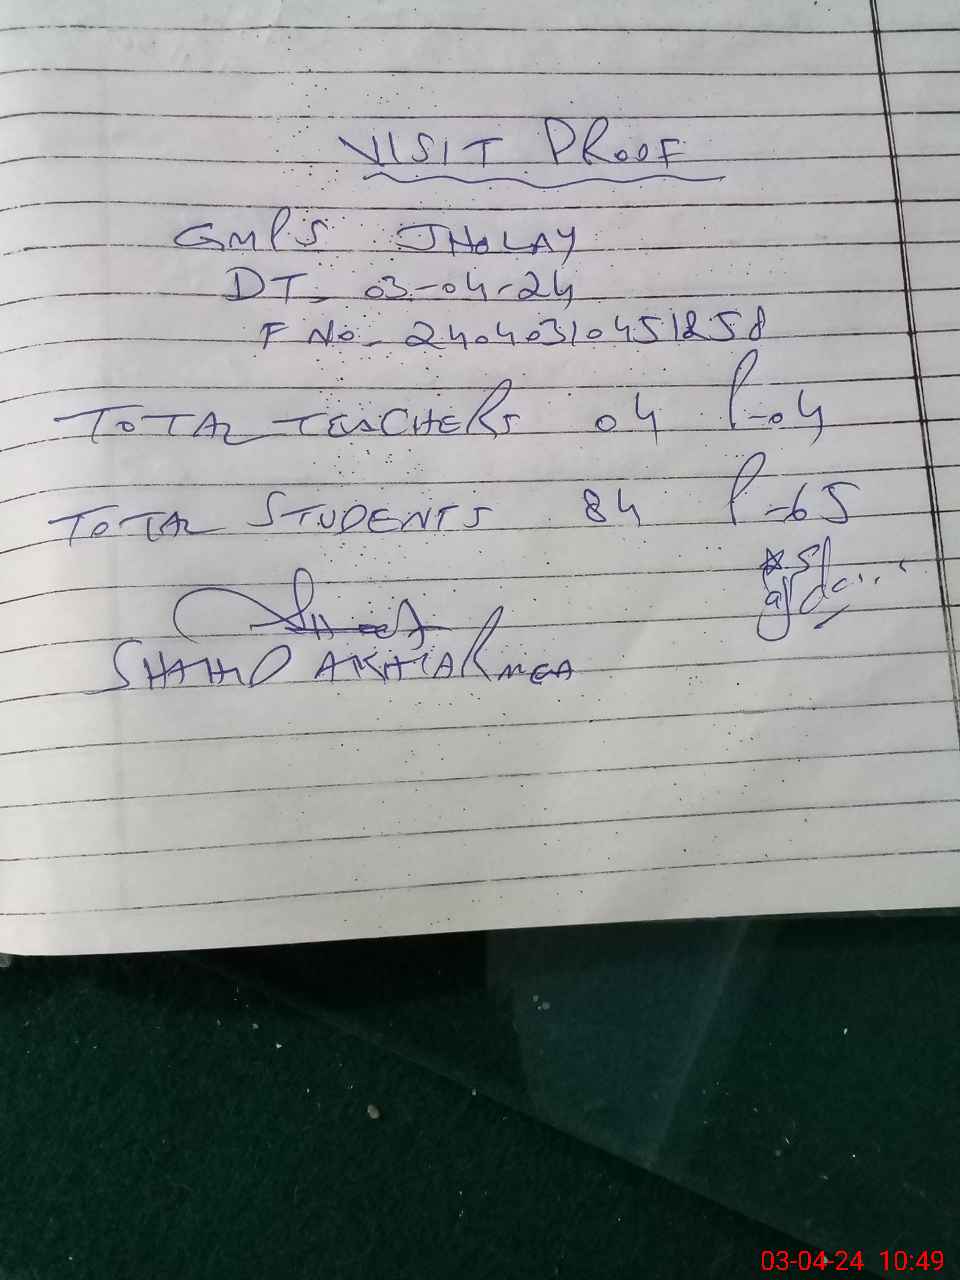 VISIT PROOF
GMPS JHOLAY
DT. 03-04-24
F No- 24040310451258
TOTAL TEACHERS 04 P-04
TOTAL STUDENTS 84 P-65
SHAHID AKHTAR MEA
03-04-24 10:49